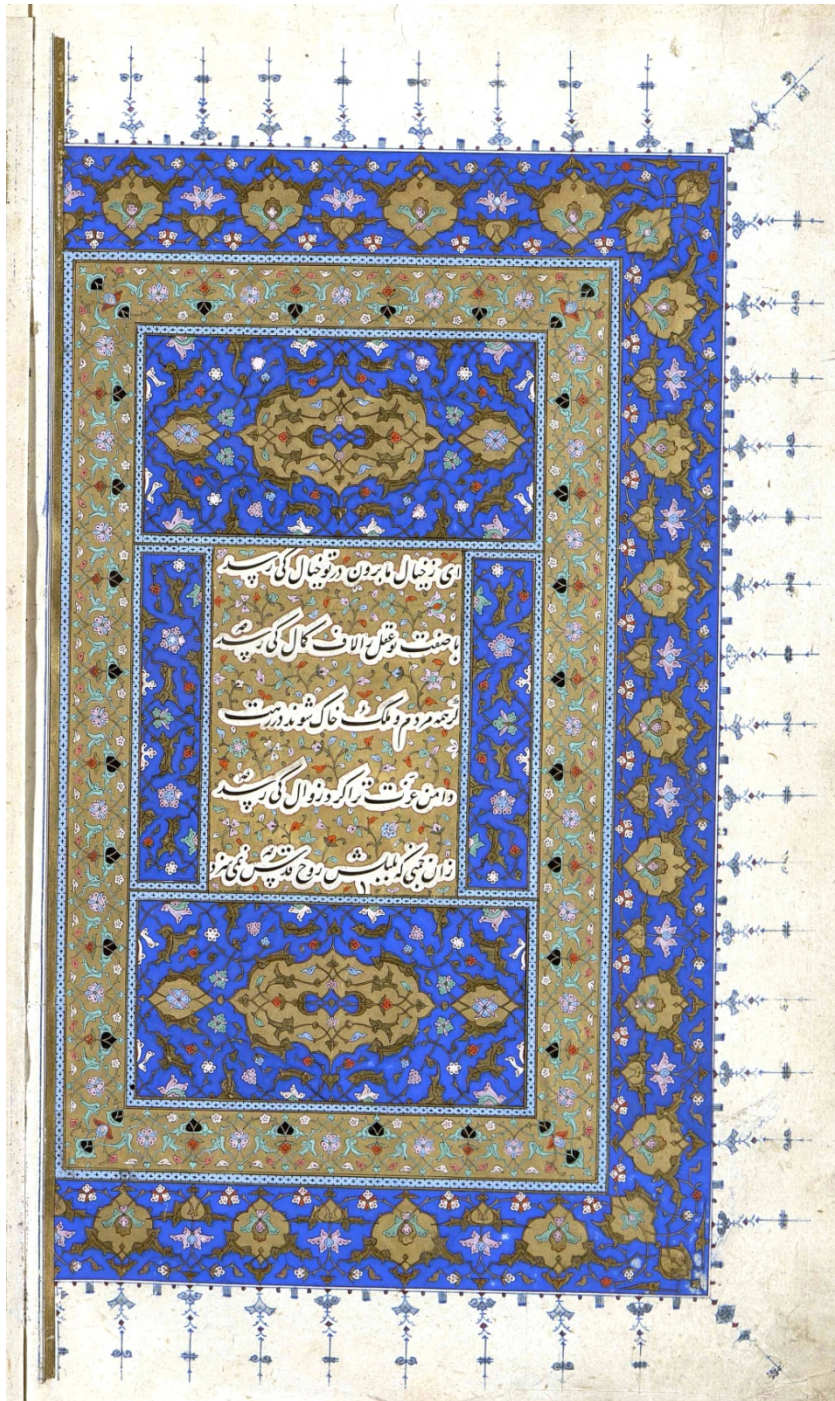 ای ز خیال ما برون در تو خیال کی رسد
با صفت تو عقل را لاف کمال کی رسد
گر همه مردم و ملک خاک شوند در رهت
دامن عزت ترا گرد زوال کی رسد
زان چمنی که بلبلش روح قدس نمی سزد